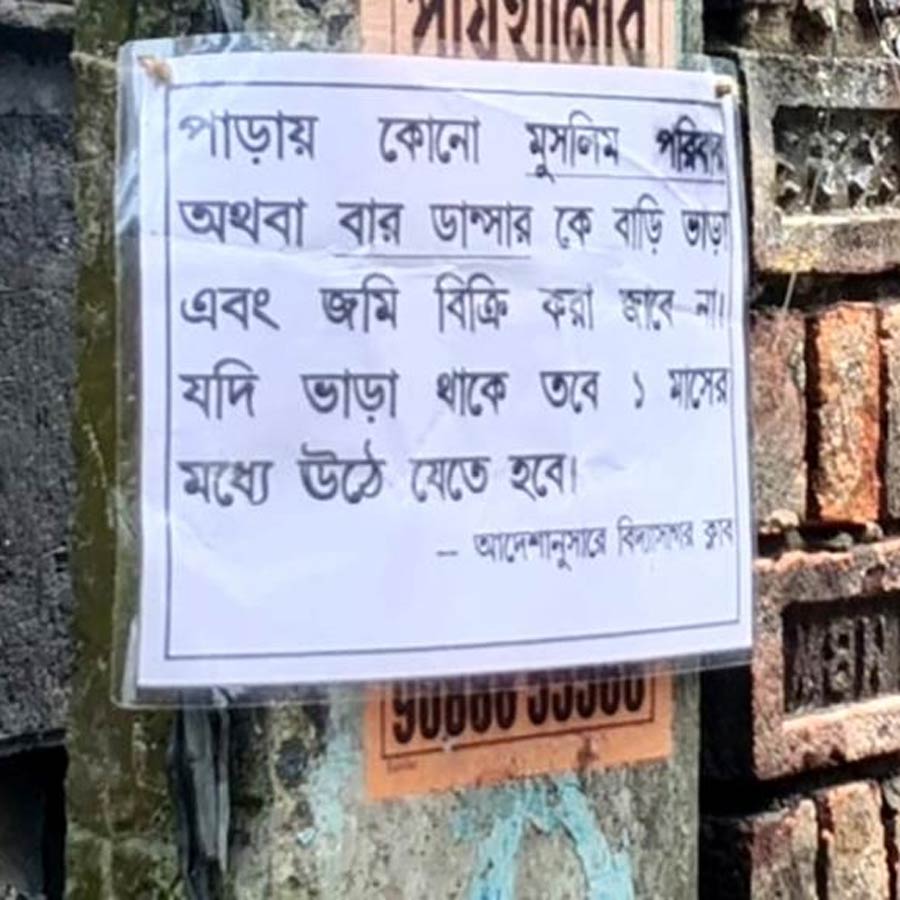 পাড়ায় কোনো মুসলিম পরিবার
অথবা বার ডান্সার কে বাড়ি ভাড়া
এবং জমি বিক্রি করা জাবে না।
যদি ভাড়া থাকে তবে ১ মাসের
মধ্যে ঊঠে যেতে হবে।
– আদেশানুসারে বিদ্যাসাগর ক্লাব